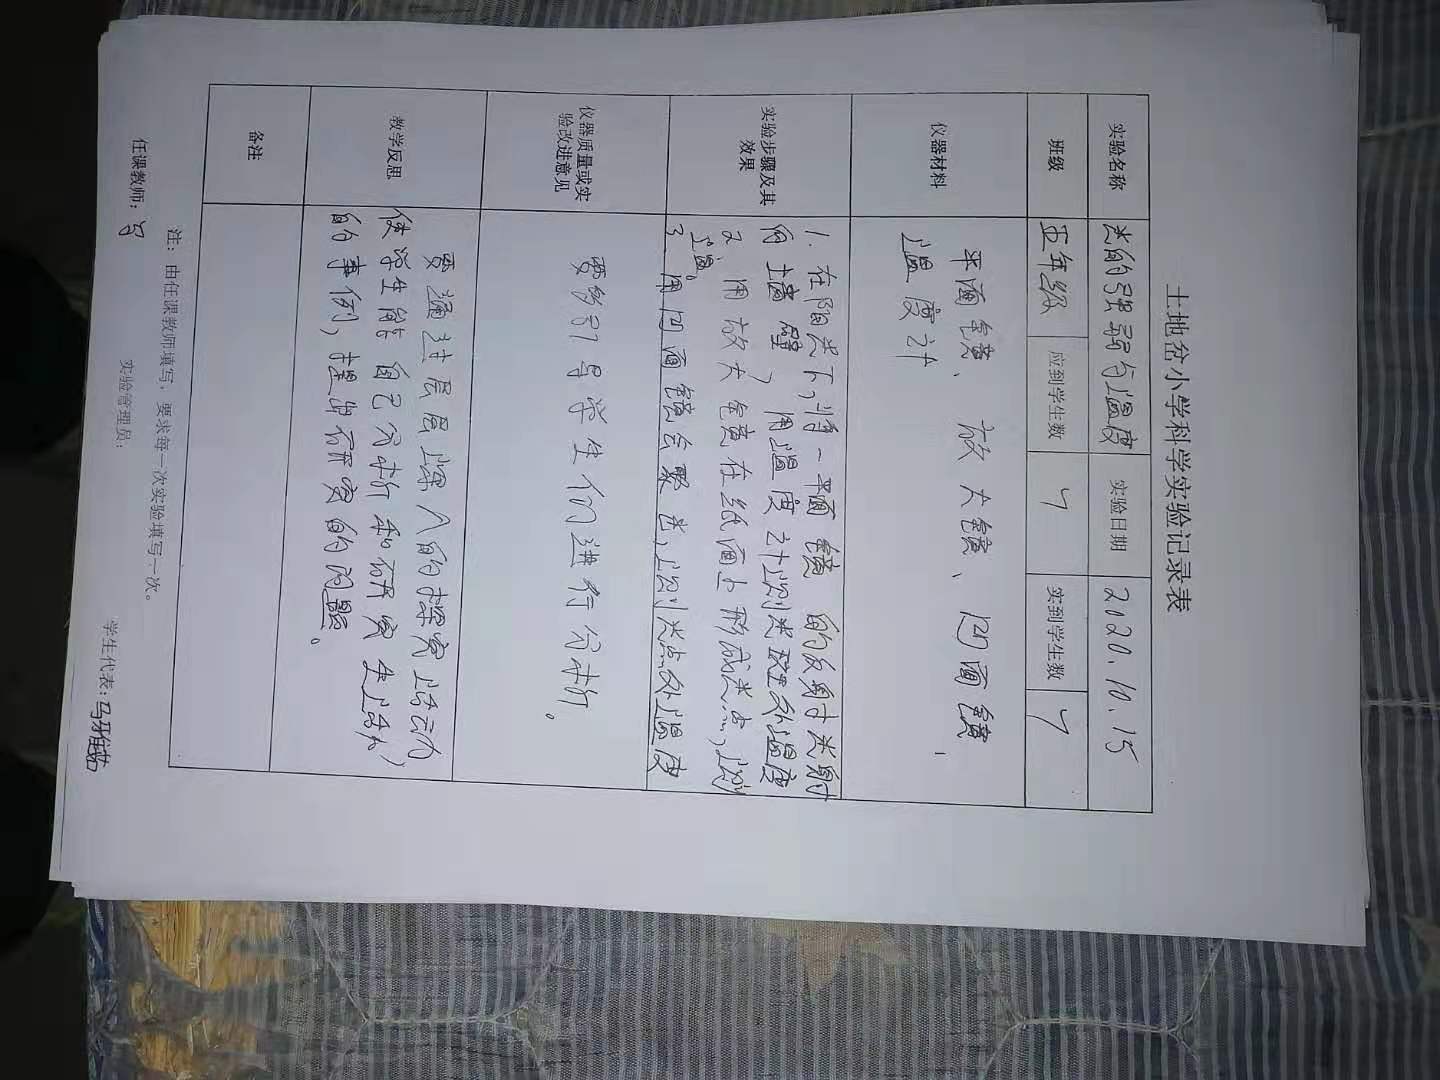 土地岔小学科学实验记录表
实验名称 光的强弱与温度 实验日期 2020.10.15
班级 五年级 应到学生数 7 实到学生数 7
仪器材料 平面镜、放大镜、凹面镜、
温度计
实验步骤及其
效果
1. 在阳光下,将一平面镜的反射光射
向墙壁,用温度计测光斑处温度
2、用放大镜在纸面上形成光点,测
温。
3、用凹面镜会聚光,测光点处温度
仪器质量或实
验改进意见
要多引导学生们进行分析。
教学反思
要通过层层深入的探究活动
使学生能自己分析和研究生活中
的事例,提出研究的问题。
备注
注:由任课教师填写,要求每一次实验填写一次。
任课教师: 实验管理员: 学生代表:马